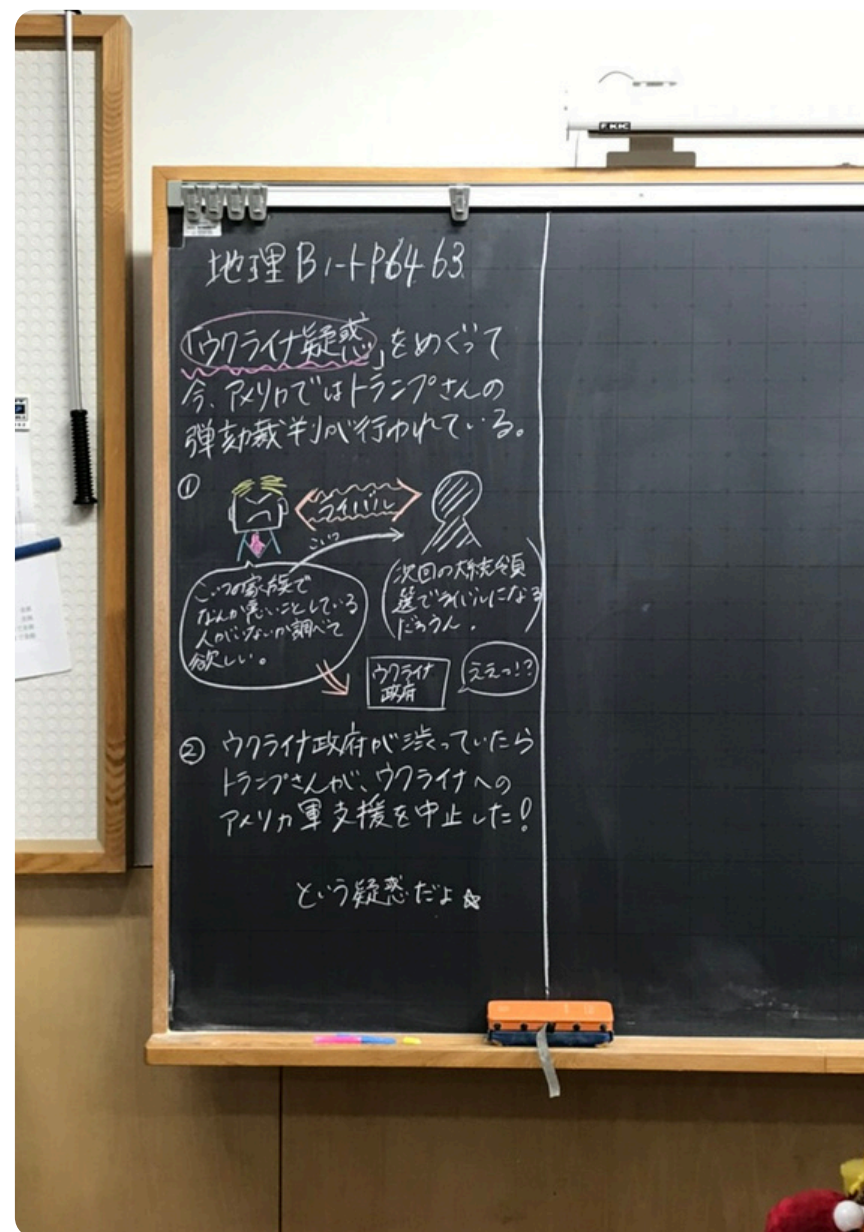 地理Bノート P64 63
「ウクライナ疑惑」をめぐって
今、アメリカではトランプさんの
弾劾裁判が行われている。
①
ライバル
こいつ
こいつの家族で
なんか悪いことしている
人がいないか調べて
欲しい。
(次回の大統領
選でライバルになる
だろう人。)
ウクライナ
政府
ええっ!?
② ウクライナ政府が渋っていたら
トランプさんが、ウクライナへの
アメリカ軍支援を中止した!
という疑惑だよ☆